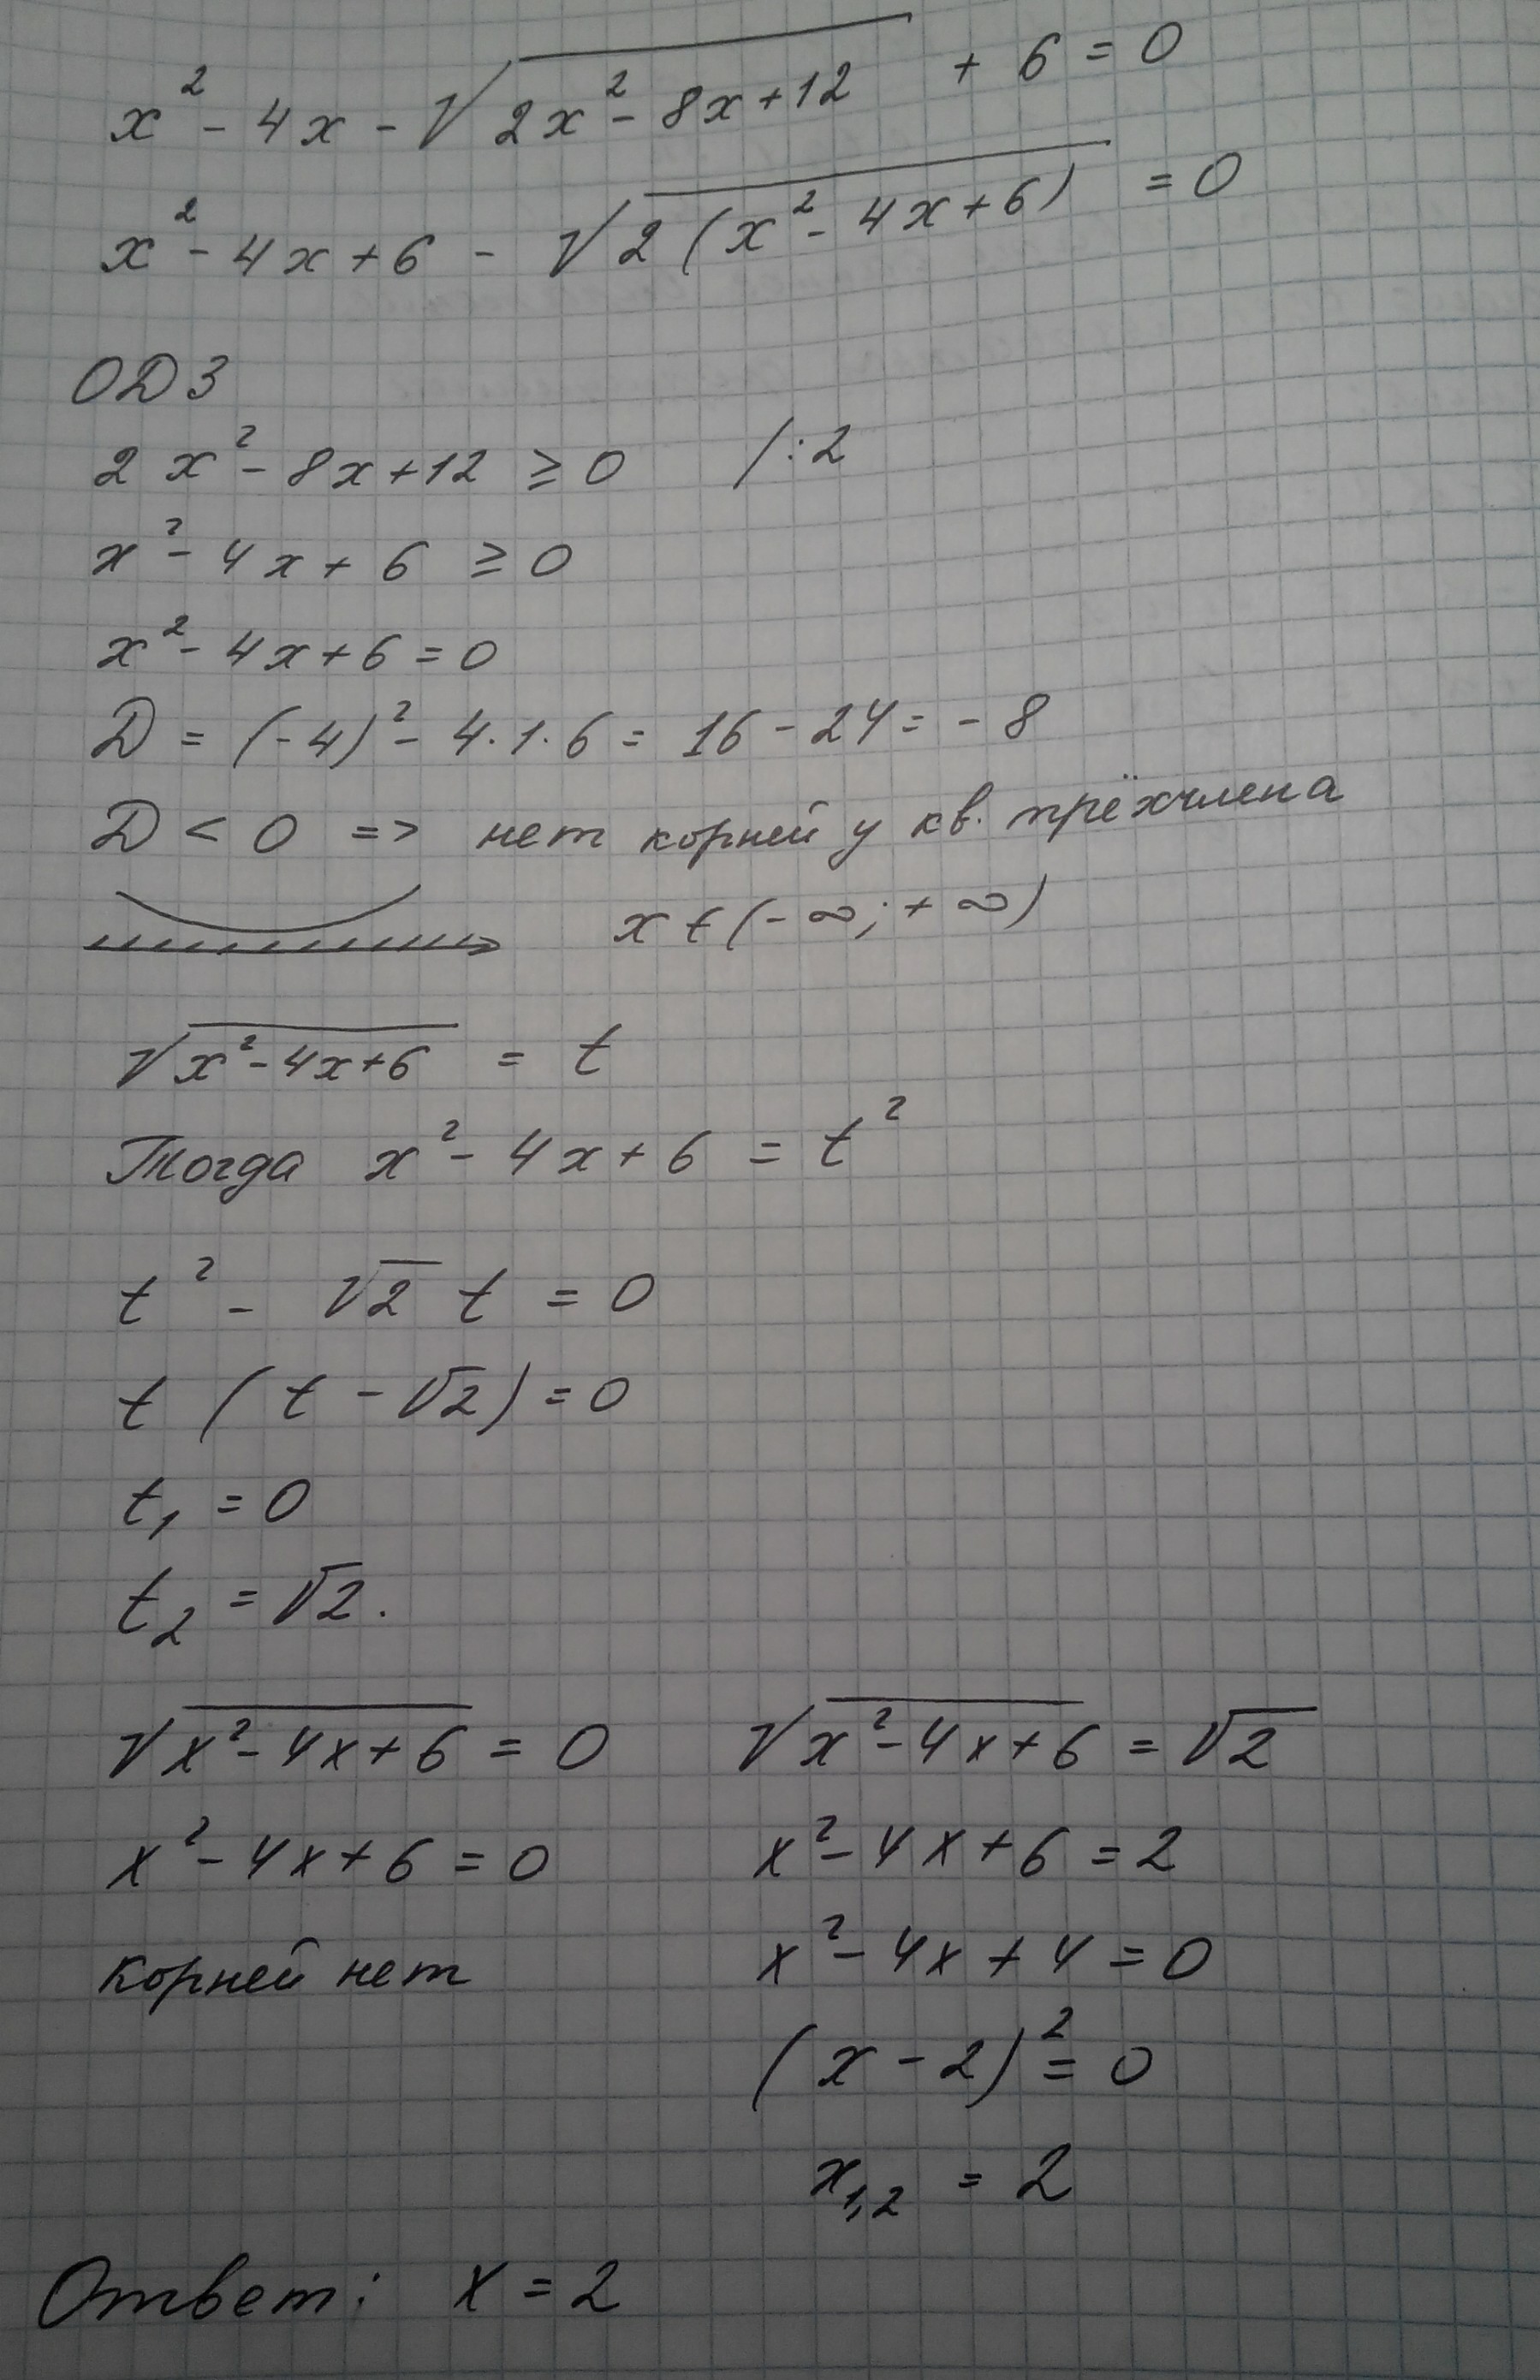 x² - 4x - √(2x² - 8x + 12) + 6 = 0
x² - 4x + 6 - √(2(x² - 4x + 6)) = 0
ОДЗ
2x² - 8x + 12 ≥ 0 /:2
x² - 4x + 6 ≥ 0
x² - 4x + 6 = 0
D = (-4)² - 4·1·6 = 16 - 24 = -8
D < 0 => нет корней у кв. трёхчлена
x ∈ (-∞; +∞)
√(x² - 4x + 6) = t
Тогда x² - 4x + 6 = t²
t² - √2 t = 0
t (t - √2) = 0
t₁ = 0
t₂ = √2.
√(x² - 4x + 6) = 0 √(x² - 4x + 6) = √2
x² - 4x + 6 = 0 x² - 4x + 6 = 2
корней нет x² - 4x + 4 = 0
(x - 2)² = 0
x₁,₂ = 2
Ответ: x = 2